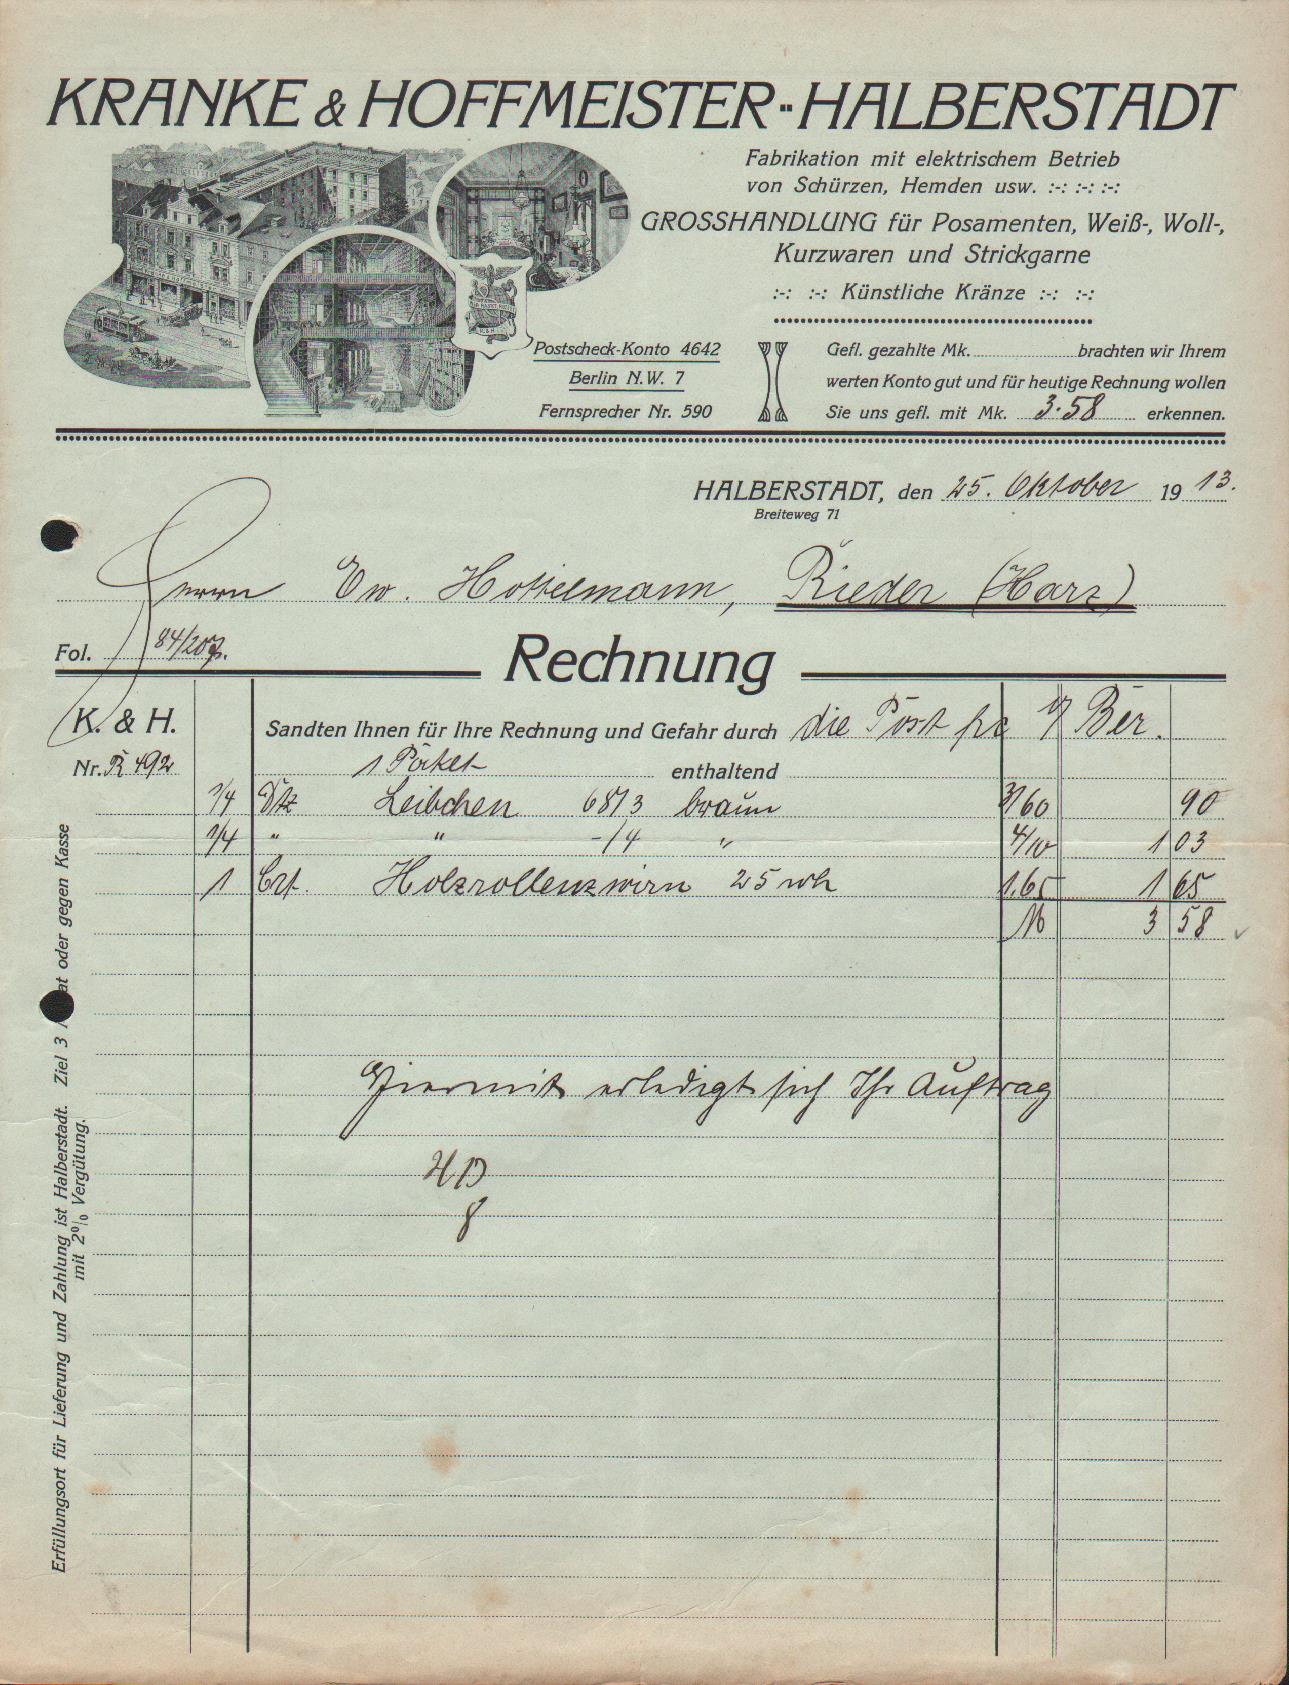 KRANKE & HOFFMEISTER-HALBERSTADT
Fabrikation mit elektrischem Betrieb
von Schürzen, Hemden usw. :-: :-: :-:
GROSSHANDLUNG für Posamenten, Weiß-, Woll-,
Kurzwaren und Strickgarne
:-: :-: Künstliche Kränze :-: :-:
Postscheck-Konto 4642
Berlin N.W. 7
Fernsprecher Nr. 590
Gefl. gezahlte Mk. brachten wir Ihrem
werten Konto gut und für heutige Rechnung wollen
Sie uns gefl. mit Mk. 3.58 erkennen.
HALBERSTADT, den 25. Oktober 1913.
Breiteweg 71
Herrn Ew. Hottelmann, Rieder (Harz)
Fol. 84/207.
Rechnung
K. & H.
Sandten Ihnen für Ihre Rechnung und Gefahr durch die Post
Nr. R 492
1 Packet enthaltend
1/4 Dtz Leibchen 68/3 braun 3/60 90
1/4 " " -/4 " 4/10 1 03
1 Crt. Holzrollenzwirn 25 wh 1.65 1 65
M 3 58
Hiermit erledigt sich Ihr Auftrag
8
Erfüllungsort für Lieferung und Zahlung ist Halberstadt. Ziel 3 at oder gegen Kasse
mit 2% Vergütung.